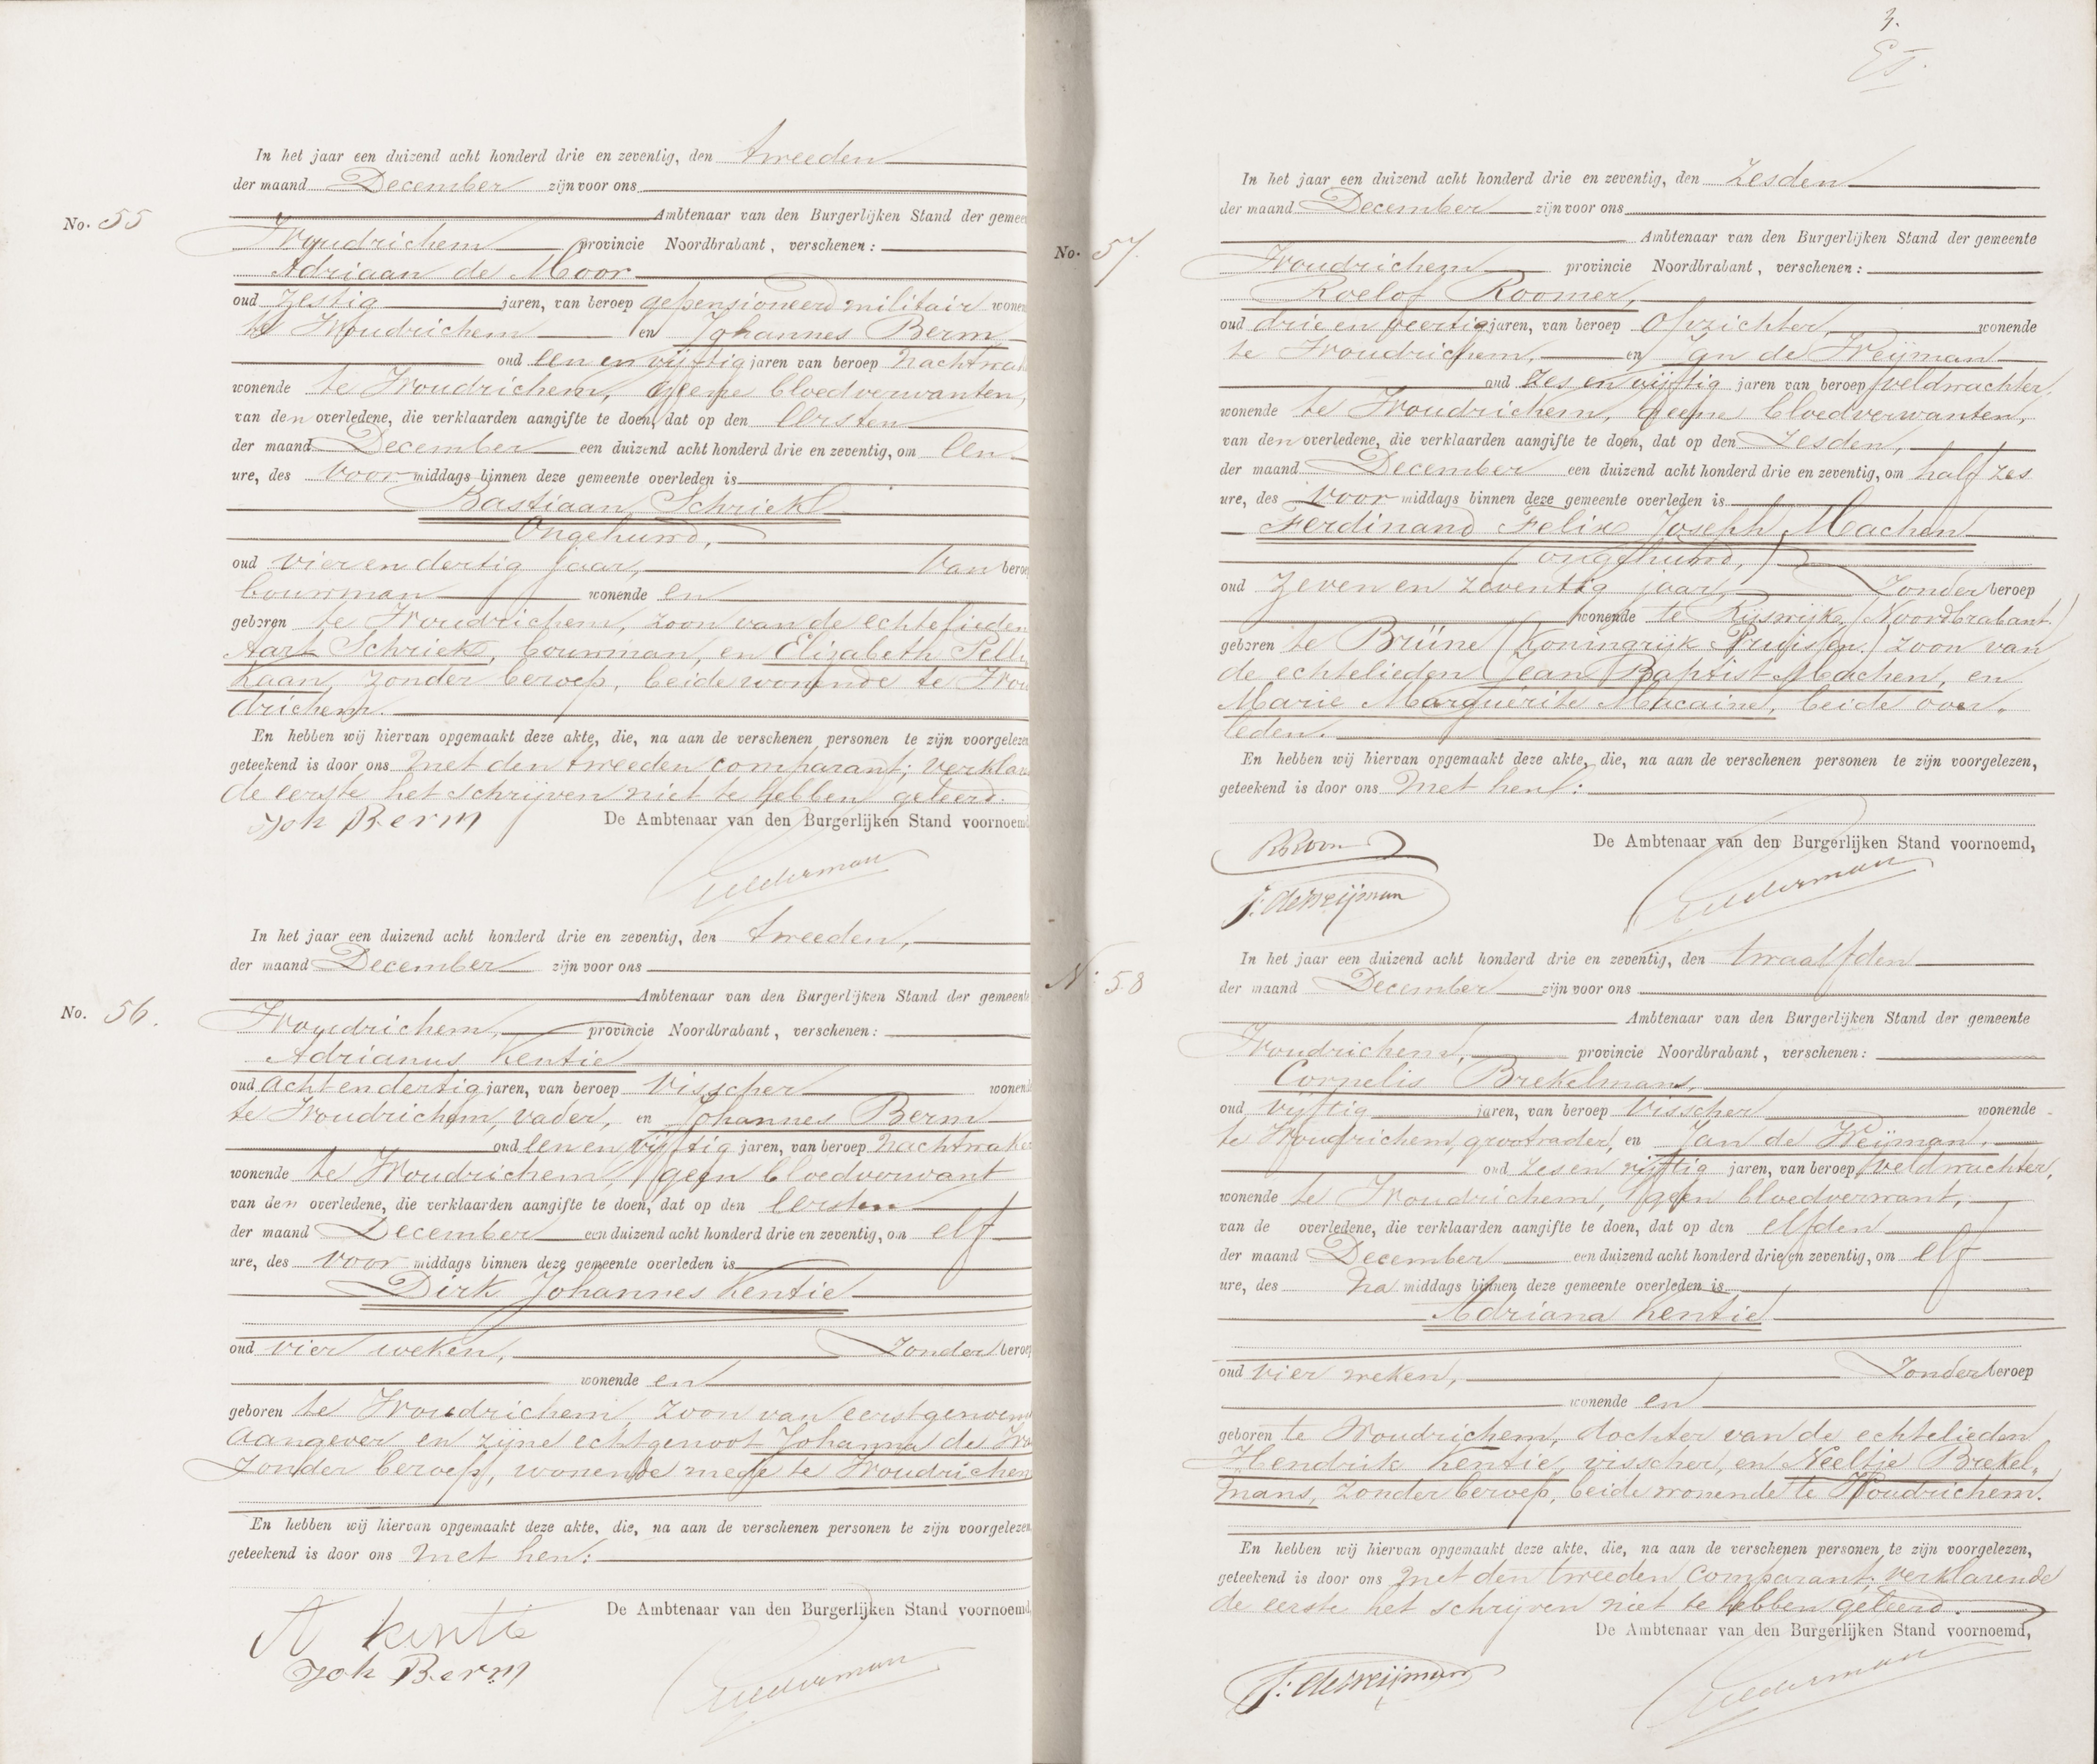 In het jaar een duizend acht honderd drie en zeventig, den tweeden
der maand December zijn voor ons
No. 55
Ambtenaar van den Burgerlijken Stand der gemee
Woudrichem provincie Noordbrabant, verschenen:
Adriaan de Moor
oud zestig jaren, van beroep gepensioneerd militair wonen
te Woudrichem en Johannes Berm
oud een en vijftig jaren van beroep nachtwa
wonende te Woudrichem, geene bloedverwanten,
van den overledene, die verklaarden aangifte te doen, dat op den eersten
der maand December een duizend acht honderd drie en zeventig, om een
ure, des voor middags binnen deze gemeente overleden is
Bastiaan Schriek
Ongehuwd,
oud vier en dertig jaar, van beroe
bouwman wonende en
geboren te Woudrichem, zoon van de echtelieden
Aart Schriek, bouwman, en Elizabeth Pell
kaan, zonder beroep, beide wonende te Wou
drichem.
En hebben wij hiervan opgemaakt deze akte, die, na aan de verschenen personen te zijn voorgelezen
geteekend is door ons met den tweeden comparant; verkla
de eerste het schrijven niet te hebben geleerd.
Joh Berm
De Ambtenaar van den Burgerlijken Stand voornoemd
In het jaar een duizend acht honderd drie en zeventig, den tweeden,
der maand December zijn voor ons
Ambtenaar van den Burgerlijken Stand der gemeente
No. 56.
Woudrichem, provincie Noordbrabant, verschenen:
Adrianus Kentie
oud acht en dertig jaren, van beroep visscher wonend
te Woudrichem, vader, en Johannes Berm
oud een en vijftig jaren, van beroep nachtwake
wonende te Woudrichem, geen bloedverwant
van den overledene, die verklaarden aangifte te doen, dat op den eersten
der maand December een duizend acht honderd drie en zeventig, om elf
ure, des voor middags binnen deze gemeente overleden is
Dirk Johannes Kentie
oud vier weken, Zonder beroe
wonende en
geboren te Woudrichem, zoon van eerstgenoem
aangever en zijne echtgenoot Johanna de
zonder beroep, wonende mede te Woudrichem
En hebben wij hiervan opgemaakt deze akte, die, na aan de verschenen personen te zijn voorgelezen
geteekend is door ons met hen:
De Ambtenaar van den Burgerlijken Stand voornoemd,
A Kentie
Joh Berm
3.
In het jaar een duizend acht honderd drie en zeventig, den zesden
der maand December zijn voor ons
Ambtenaar van den Burgerlijken Stand der gemeente
No. 57.
Woudrichem provincie Noordbrabant, verschenen:
Roelof Roomer,
oud drie en veertig jaren, van beroep Opzichter, wonende
te Woudrichem, en Jan de Weijman
oud zes en vijftig jaren van beroep veldwachter,
wonende te Woudrichem, geene bloedverwanten,
van den overledene, die verklaarden aangifte te doen, dat op den zesden,
der maand December een duizend acht honderd drie en zeventig, om half zes
ure, des voor middags binnen deze gemeente overleden is
Ferdinand Felix Joseph Machen
(ongehuwd,)
oud zeven en zeventig jaar, Zonder beroep
wonende te Rijswijk (Noordbrabant)
geboren te Brüne (Koningrijk Pruissen.) zoon van
de echtelieden Jean Baptist Machen, en
Marie Marguérite Macaine, beide over-
leden.
En hebben wij hiervan opgemaakt deze akte, die, na aan de verschenen personen te zijn voorgelezen,
geteekend is door ons met hen:
De Ambtenaar van den Burgerlijken Stand voornoemd,
J: de Weijman
In het jaar een duizend acht honderd drie en zeventig, den twaalfden
N: 58
der maand December zijn voor ons
Ambtenaar van den Burgerlijken Stand der gemeente
Woudrichem, provincie Noordbrabant, verschenen:
Cornelis Brekelmans,
oud vijftig jaren, van beroep visscher wonende
te Woudrichem, grootvader, en Jan de Weijman,
oud zes en vijftig jaren, van beroep veldwachter,
wonende te Woudrichem, geen bloedverwant,
van de overledene, die verklaarden aangifte te doen, dat op den elfden
der maand December een duizend acht honderd drie en zeventig, om elf
ure, des na middags binnen deze gemeente overleden is
Adriana Kentie
oud vier weken, Zonder beroep
wonende en
geboren te Woudrichem, dochter van de echtelieden
Hendrik Kentie, visscher, en Neeltje Brekel-
mans, zonder beroep, beide wonende te Woudrichem.
En hebben wij hiervan opgemaakt deze akte, die, na aan de verschenen personen te zijn voorgelezen,
geteekend is door ons met den tweeden comparant, verklarende
de eerste het schrijven niet te hebben geleerd.
De Ambtenaar van den Burgerlijken Stand voornoemd,
J: de Weijman